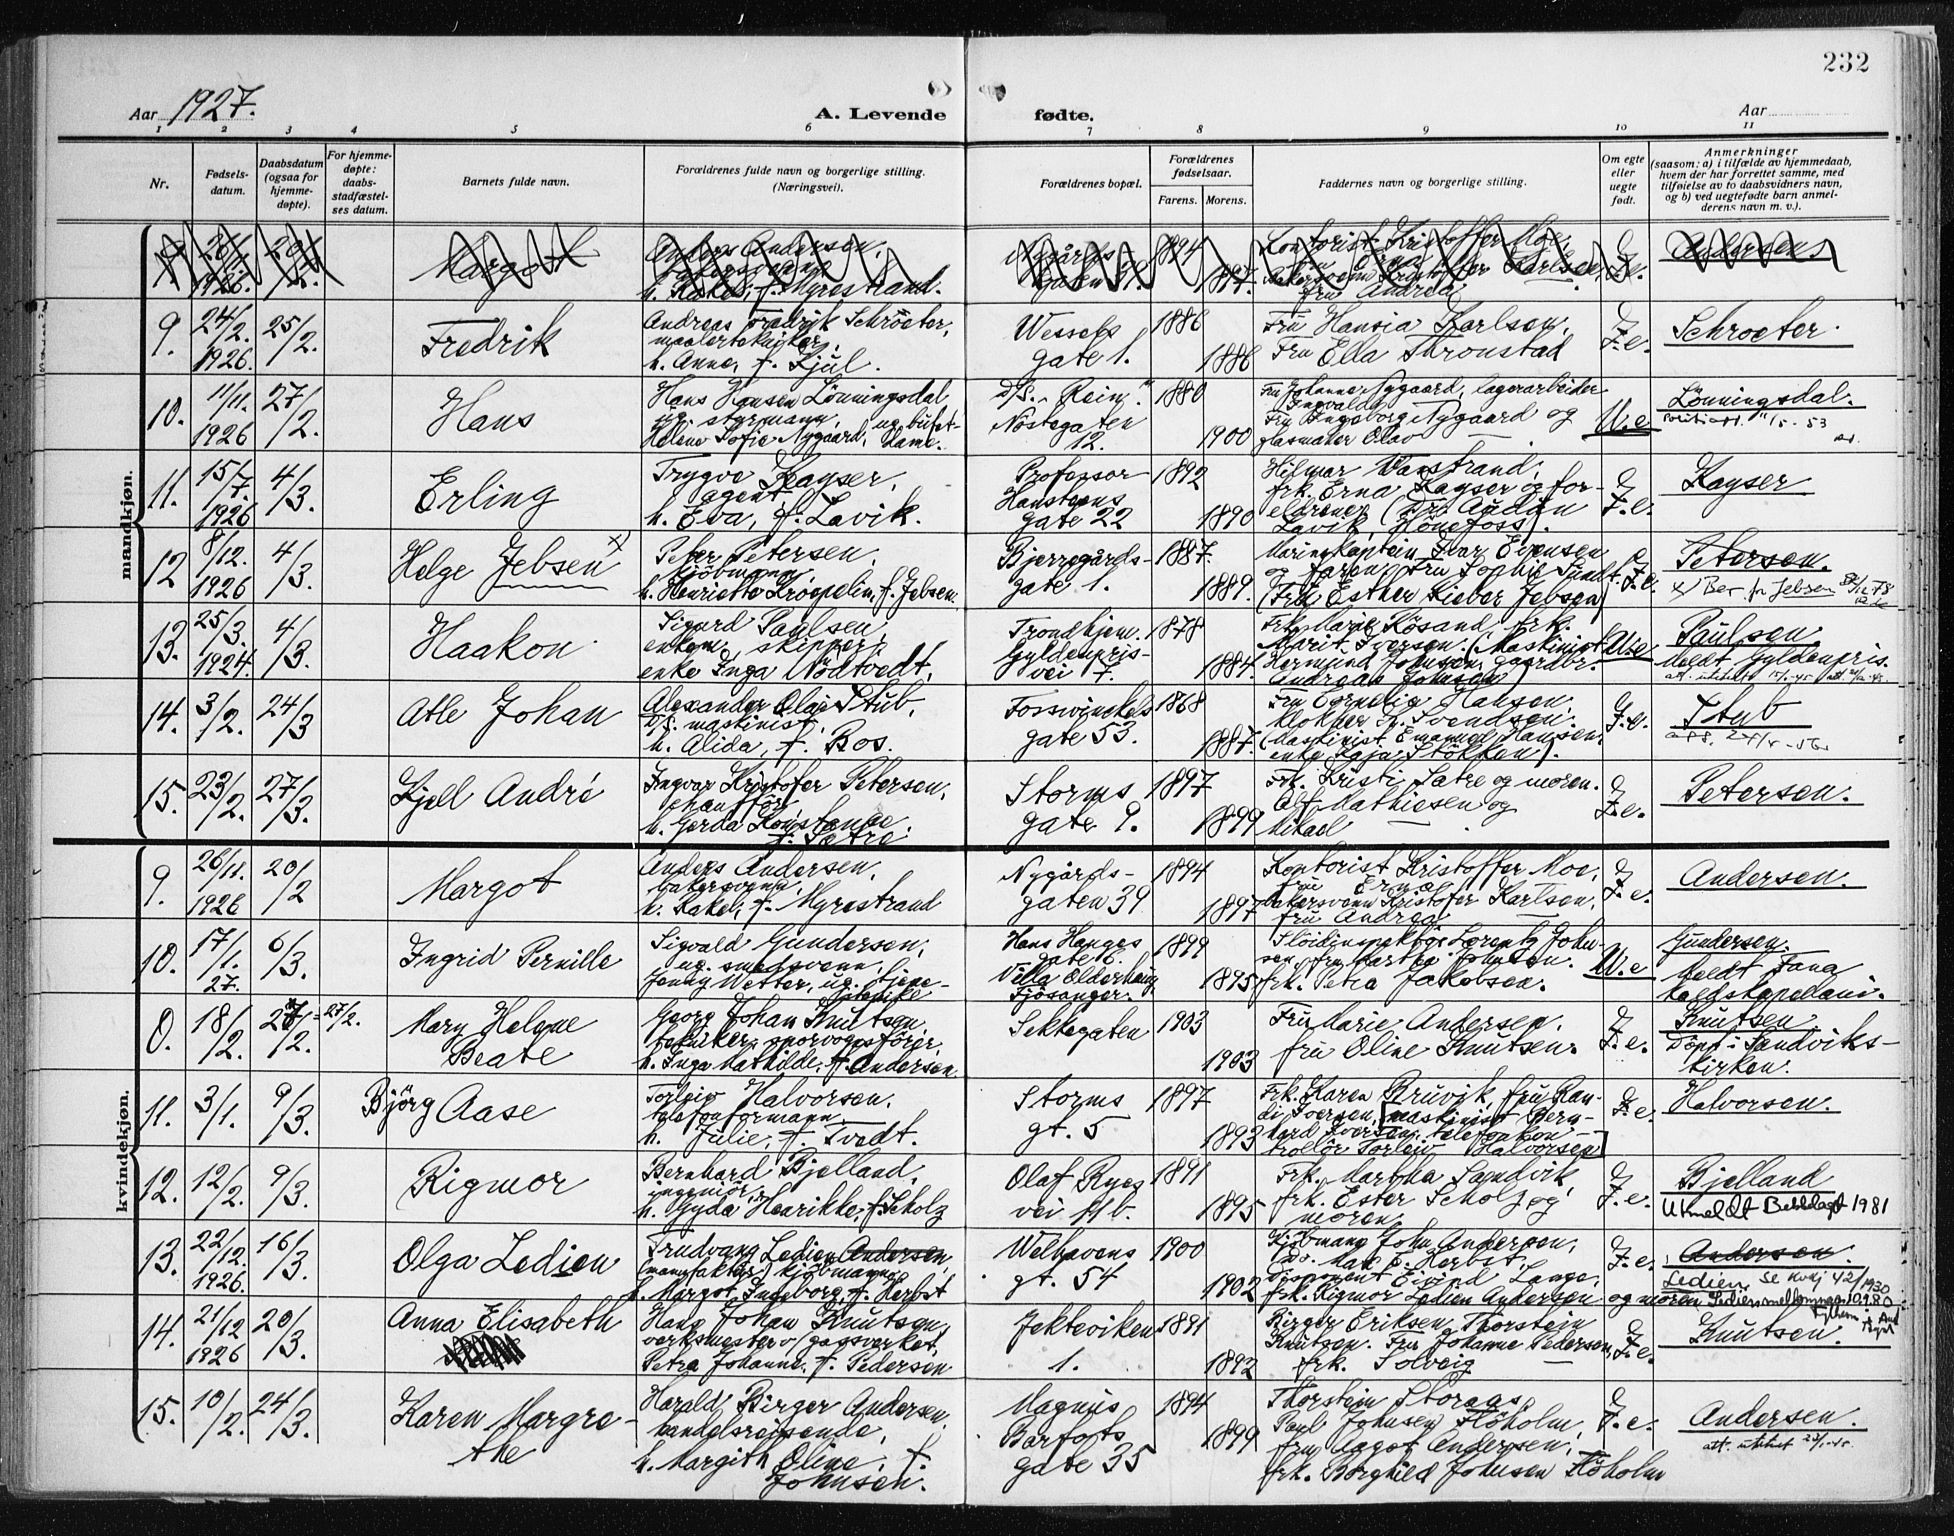 232
Aar 1927.
A. Levende fødte.
Aar
1 2 3 4 5 6 7 8 9 10 11
Nr.
Fødsels-
datum.
Daabsdatum
(ogsaa for
hjemme-
døpte).
For hjemme-
døpte:
daabs-
stadfæstel-
ses datum.
Barnets fulde navn.
Forældrenes fulde navn og borgerlige stilling.
(Næringsvei).
Forældrenes bopæl.
Forældrenes
fødselsaar.
Farens. Morens.
Faddernes navn og borgerlige stilling.
Om egte
eller
uegte
født.
Anmerkninger
(saasom: a) i tilfælde av hjemmedaab,
hvem der har forrettet samme, med
tilføielse av to daabsvidners navn,
og b) ved uegtefødte barn anmel-
derens navn m. v.).
mandkjøn.
Margot
Anders Andersen,
h. Rakel, f. Myrestrand.
1894
1897.
Kontorist Kristoffer Moe,
fru Andrea
Andersen
9. 24/2. 1926. 25/2.
Fredrik
Andreas Fredrik Schröeter,
h. Anna, f. Kjul.
Wessels
gate 1.
1886
1886
Fru Hansia Karlsen.
Fru Ella Thronstad
F.e.
Schroeter.
10. 11/11. 1926 27/2.
Hans
Hans Hansen Lönningsdal
ug. styrmann, ug. bufet-
Helene Sofie Nygaard, dame.
D/S. "Rein".
Nöstegaten
12.
1880
1900
Fru Johanne Nygaard, lagerarbeider
Ingvald
Fru Ingeborg Nygaard og
glasmaker Olav
U.e
Lönningsdal.
11. 15/7. 1926 4/3.
Erling
Trygve Kayser,
agent
h. Eva, f. Lavik.
Professor
Hansteens
gate 22
1892
1890
Hilmar Vanstrand,
frk. Erna Kayser og for-
eldrene (Fru Audun
Lavik, Hönefoss).
F.e.
Kayser
12 8/12. 1926 4/3.
Helge Jebsen x)
Peter Petersen,
kjöbmann
h. Henriette Kroepelin, f. Jebsen.
Bjerregårds-
gate 1.
1887.
1889.
Marinekaptein Ivar Evensen
og faren, Fru Sophie Sundt.
(Fru Esther Lieber Jebsen)
F.e.
Petersen.
x) Ber. fr Jebsen
13. 25/3. 1924. 4/3.
Haakon.
Sigurd Paulsen
enkem. skipper,
enke Inga Nödtvedt,
Trondhjem.
Gyldenpris-
vei 7.
1878
1884.
Frk. Marie Kösand, frk.
Marit Iversen. (Maskinist
Hermund Johnsen, gaardbr.
Andreas Johnsen)
U.e
Paulsen.
Meldt Gyldenpris.
14. 3/2. 24/3
Atle Johan
Alexander Olai Stub,
D/S. maskinist,
h. Alida, f. Bos.
Fosswinckels
gate 53.
1868
1887.
Fru Cornelia Hansen,
klokker N. Svendsen.
(Maskinist Emanuel Hansen,
enke Kaja Stökken).
F.e.
Stub
15. 23/2. 27/3.
Kjell André
Ingvar Kristofer Petersen,
chaufför
h. Gerda Konstanse,
f. Sætre
Storms
gate 9.
1897
1899
Frk. Kristi Sætre og moren.
Alf Mathiesen og
Mikael —
F.e.
Petersen.
kvindekjøn.
9. 26/11. 1926 20/2
Margot
Anders Andersen,
bakersvenn,
h. Rakel, f. Myrestrand
Nygårds-
gaten 39
1894
1897
Kontorist Kristoffer Moe,
fru Erna —
bakersvenn Kristofer Karlsen,
fru Andrea —
F.e.
Andersen.
10. 17/1. 27. 6/3.
Ingrid Pernille
Sigvald Gundersen,
ug. smedsvenn,
Jenny Wetter, ug. tjene-
stepike
Hans Hauges
gate 6.
Villa Olderhaug,
Fjösanger.
1899
1895
Slöidinspektör Lorentz John-
sen, fru Martha Johnsen.
frk. Petra Jakobsen.
U.e
Gundersen.
Meldt Fana
Sognskapellani.
0. 18/2. 27/2. = 27/2.
Mary Helene
Beate
Georg Johan Knutsen,
tekniker, sporvognsförer,
h. Inga Mathilde, f. Andersen
Sekkegaten
1903
1903
Fru Marie Andersen.
fru Oline Knutsen.
F.e.
Knutsen
Döpt i Sandviks-
kirken.
11. 3/1. 9/3.
Björg Aase
Torleiv Halvorsen,
telefonformann,
h. Julie, f. Tvedt.
Storms
gt. 5
1897
1893
Frk. Karen Bruvik, fru Ran-
di Iversen, [maskinist Bern-
hard Iversen, telefonkon-
trollör Torleiv Halvorsen]
F.e.
Halvorsen.
12. 12/2. 9/3.
Rigmor
Bernhard Bjelland,
ingeniör,
h. Gyda Henrikke, f. Scholz
Olaf Ryes
vei 11b.
1891
1895
Frk. Martha Sandvik
frk. Ester Scholz og
moren
F.e.
Bjelland
Utmeldt 1981
13. 22/12. 1926. 16/3.
Olga Ledien
Trudvang Ledien Andersen,
(manufaktur) kjöbmann
h. Margot Ingeborg, f. Herbst
Welhavens
gt. 54
1900
1902
Kjöbmann John Andersen,
disponent Eivind Lange,
frk. Rigmor Ledien Andersen og moren
F.e.
Andersen.
Ledien, se kvkj 42/1930
14. 21/12 1926 20/3.
Anna Elisabeth
Hans Johan Knutsen,
verksmester v/gassverket,
Petra Johanne, f. Pedersen
Jekteviken
1.
1891
1892
Birger Eriksen, Thorstein
Knutsen. Fru Johanne Pedersen,
frk. Solveig —
F.e.
Knutsen.
15. 10/2. 24/3.
Karen Margre-
the
Harald Birger Andersen,
handelsreisende,
h. Margith Oline, f.
Johnsen.
Magnus
Barfots
gate 35
1894
1899
Thorstein Storaas,
Paul Johnsen Flöholm,
fru Aagot Andersen,
frk. Borghild Johnsen Flöholm
F.e.
Andersen.